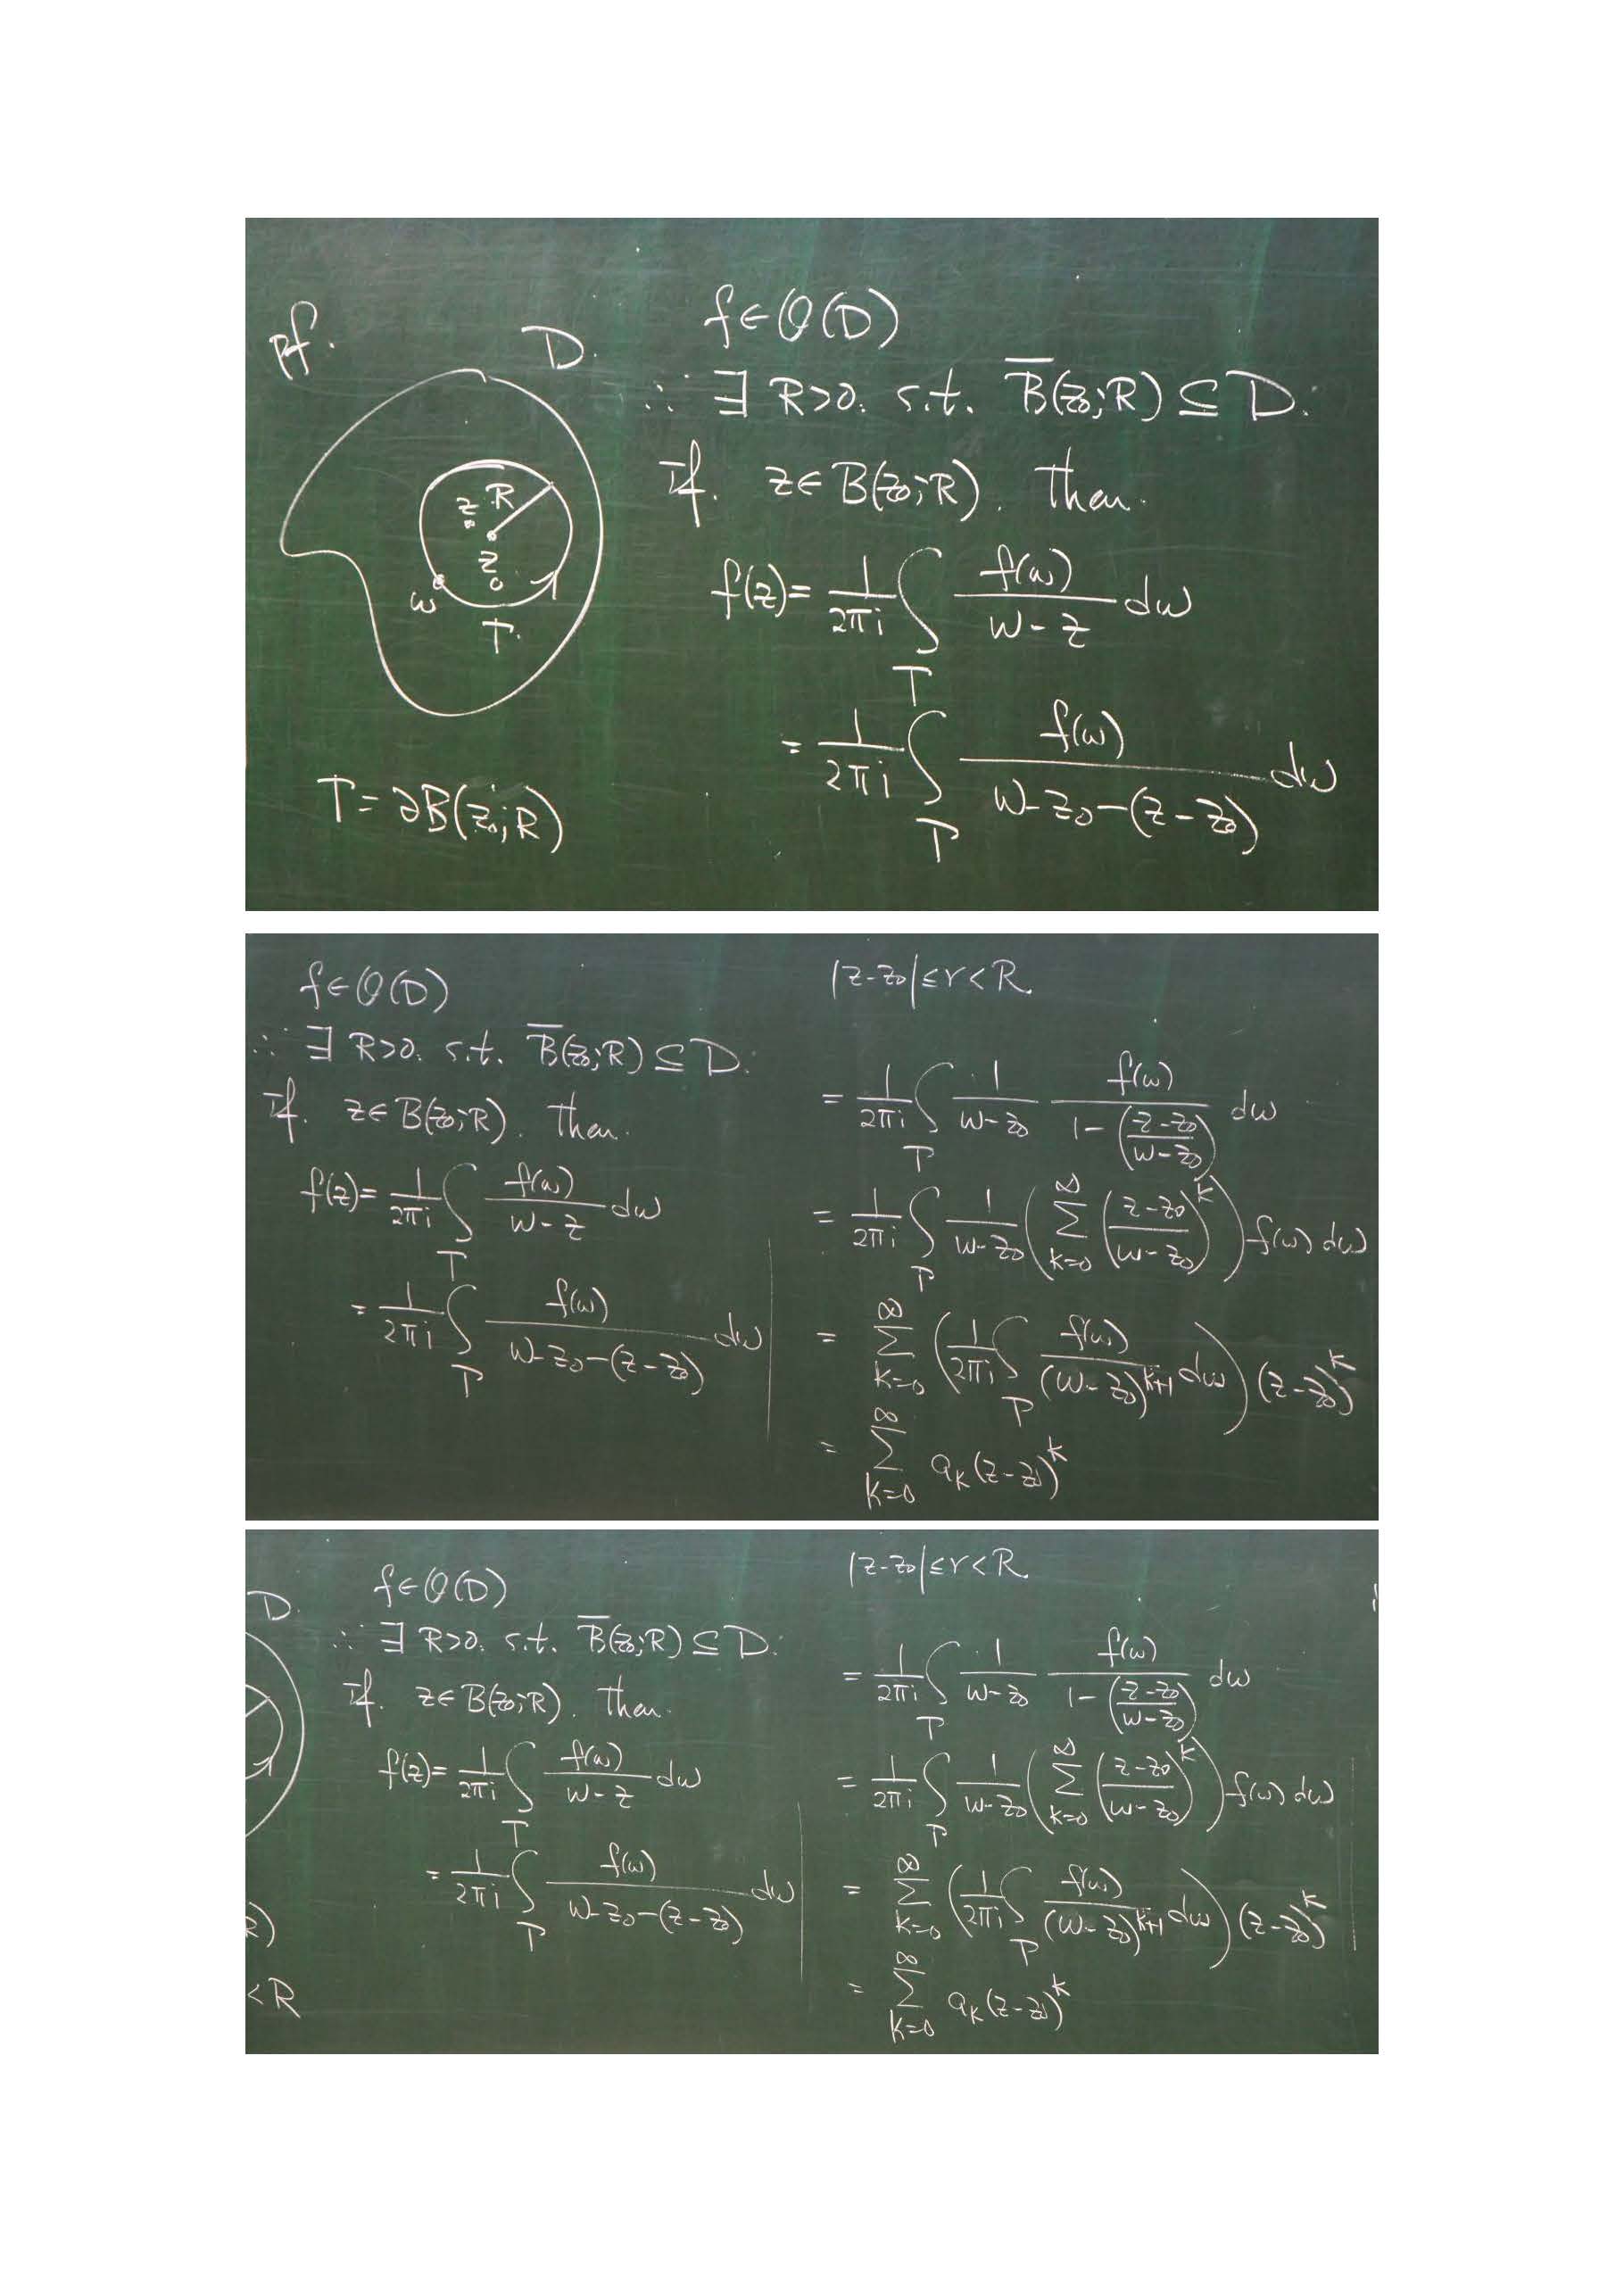 pf.
D.
f∈O(D)
∴ ∃ R>0. s.t. B̅(z₀;R) ⊆ D.
If. z∈B(z₀;R). Then.
z R
z₀
w
T
f(z) = 1/(2πi) ∫_T f(w)/(w-z) dw
= 1/(2πi) ∫_T f(w)/(w-z₀-(z-z₀)) dw
T = ∂B(z₀;R)
f∈O(D)
∴ ∃ R>0. s.t. B̅(z₀;R) ⊆ D.
If. z∈B(z₀;R). Then.
f(z) = 1/(2πi) ∫_T f(w)/(w-z) dw
= 1/(2πi) ∫_T f(w)/(w-z₀-(z-z₀)) dw
|z-z₀| ≤ r < R.
= 1/(2πi) ∫_T 1/(w-z₀) f(w)/(1-((z-z₀)/(w-z₀))) dw
= 1/(2πi) ∫_T 1/(w-z₀) (∑_{k=0}^∞ ((z-z₀)/(w-z₀))^k) f(w) dw
= ∑_{k=0}^∞ (1/(2πi) ∫_T f(w)/(w-z₀)^{k+1} dw) (z-z₀)^k
= ∑_{k=0}^∞ a_k (z-z₀)^k
D.
R)
<R
f∈O(D)
∴ ∃ R>0. s.t. B̅(z₀;R) ⊆ D.
If. z∈B(z₀;R). Then.
f(z) = 1/(2πi) ∫_T f(w)/(w-z) dw
= 1/(2πi) ∫_T f(w)/(w-z₀-(z-z₀)) dw
|z-z₀| ≤ r < R.
= 1/(2πi) ∫_T 1/(w-z₀) f(w)/(1-((z-z₀)/(w-z₀))) dw
= 1/(2πi) ∫_T 1/(w-z₀) (∑_{k=0}^∞ ((z-z₀)/(w-z₀))^k) f(w) dw
= ∑_{k=0}^∞ (1/(2πi) ∫_T f(w)/(w-z₀)^{k+1} dw) (z-z₀)^k
= ∑_{k=0}^∞ a_k (z-z₀)^k